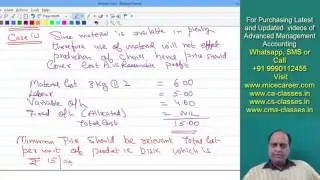 Case (i) Since material is available in plenty
therefore use of material will not effect
production of chairs. hence price should
cover cost & reasonable profit.
Material Cost 3 kg @ 2 = 6.00
Labour = 5.00
Variable o/h = 4.00
Fixed o/h (Allocated) = NIL
Total Cost 15.00
Minimum Price should be relevant total cost
per unit of product i.e. which is
₹ 15/=
For Purchasing Latest
and Updated videos of
Advanced Management
Accounting
Whatsapp, SMS or
Call
+91 9990112455
Visit
www.micecareer.com
Visit
www.ca-classes.in
www.cs-classes.in
www.cma-classes.in